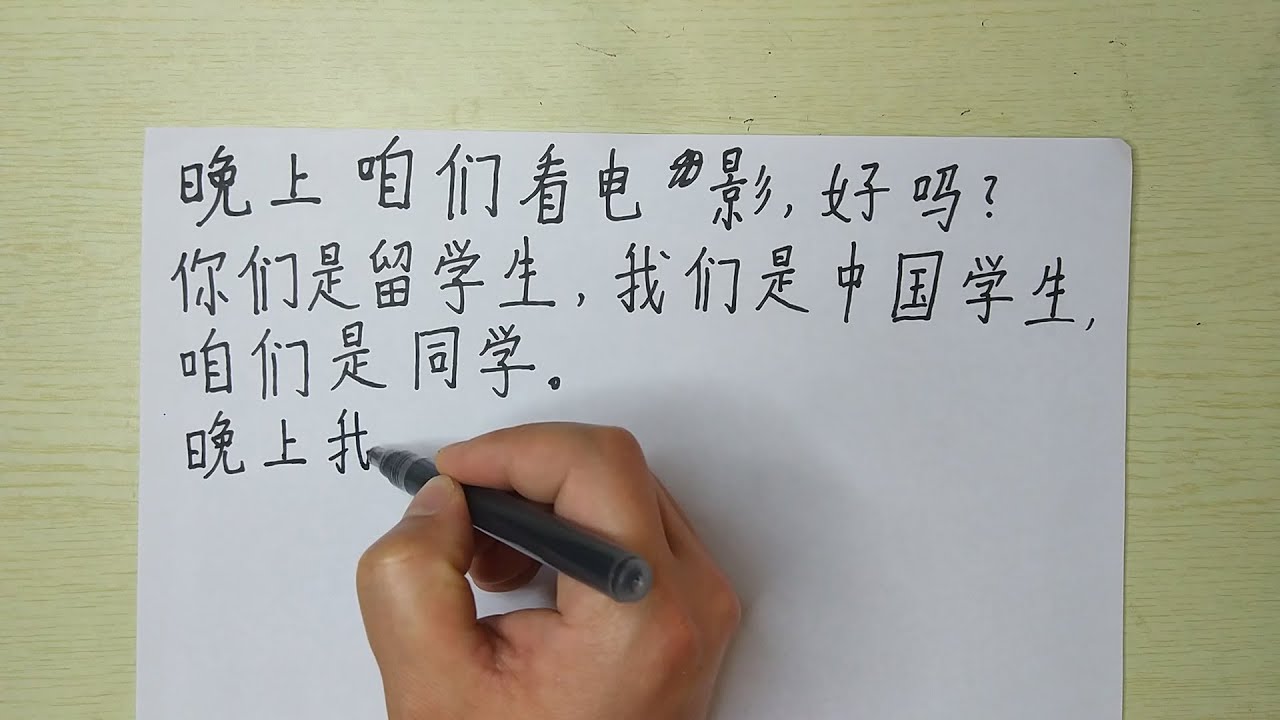 晚上咱们看电影,好吗?
你们是留学生,我们是中国学生,
咱们是同学。
晚上我